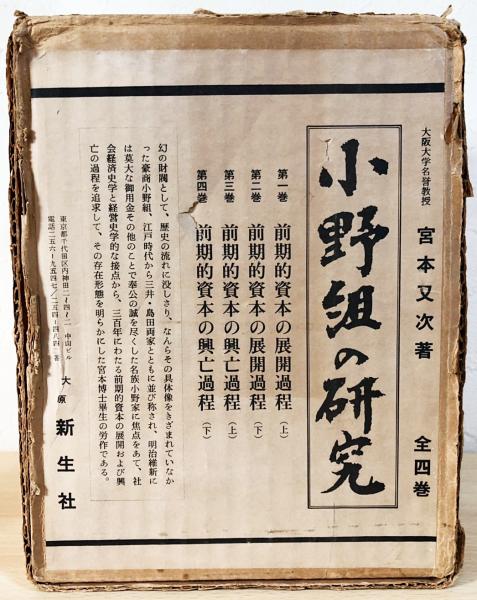 大阪大学名誉教授 宮本又次著 全四巻
小野組の研究
第一巻 前期的資本の展開過程(上)
第二巻 前期的資本の展開過程(下)
第三巻 前期的資本の興亡過程(上)
第四巻 前期的資本の興亡過程(下)
幻の財閥として、歴史の流れに没しさり、なんらその具体像をきざまれていなか
った豪商小野組、江戸時代から三井・島田両家とともに並び称され、明治維新に
は莫大な御用金その他のことで奉公の誠を尽くした名族小野家に焦点をあて、社
会経済史学と経営史学的な接点から、三百年にわたる前期的資本の展開および興
亡の過程を追求して、その存在形態を明らかにした宮本博士畢生の労作である。
東京都千代田区内神田二ノ四ノ二 中山ビル
電話二五六ー九五四七/二五四ー四八四
大原 新生社